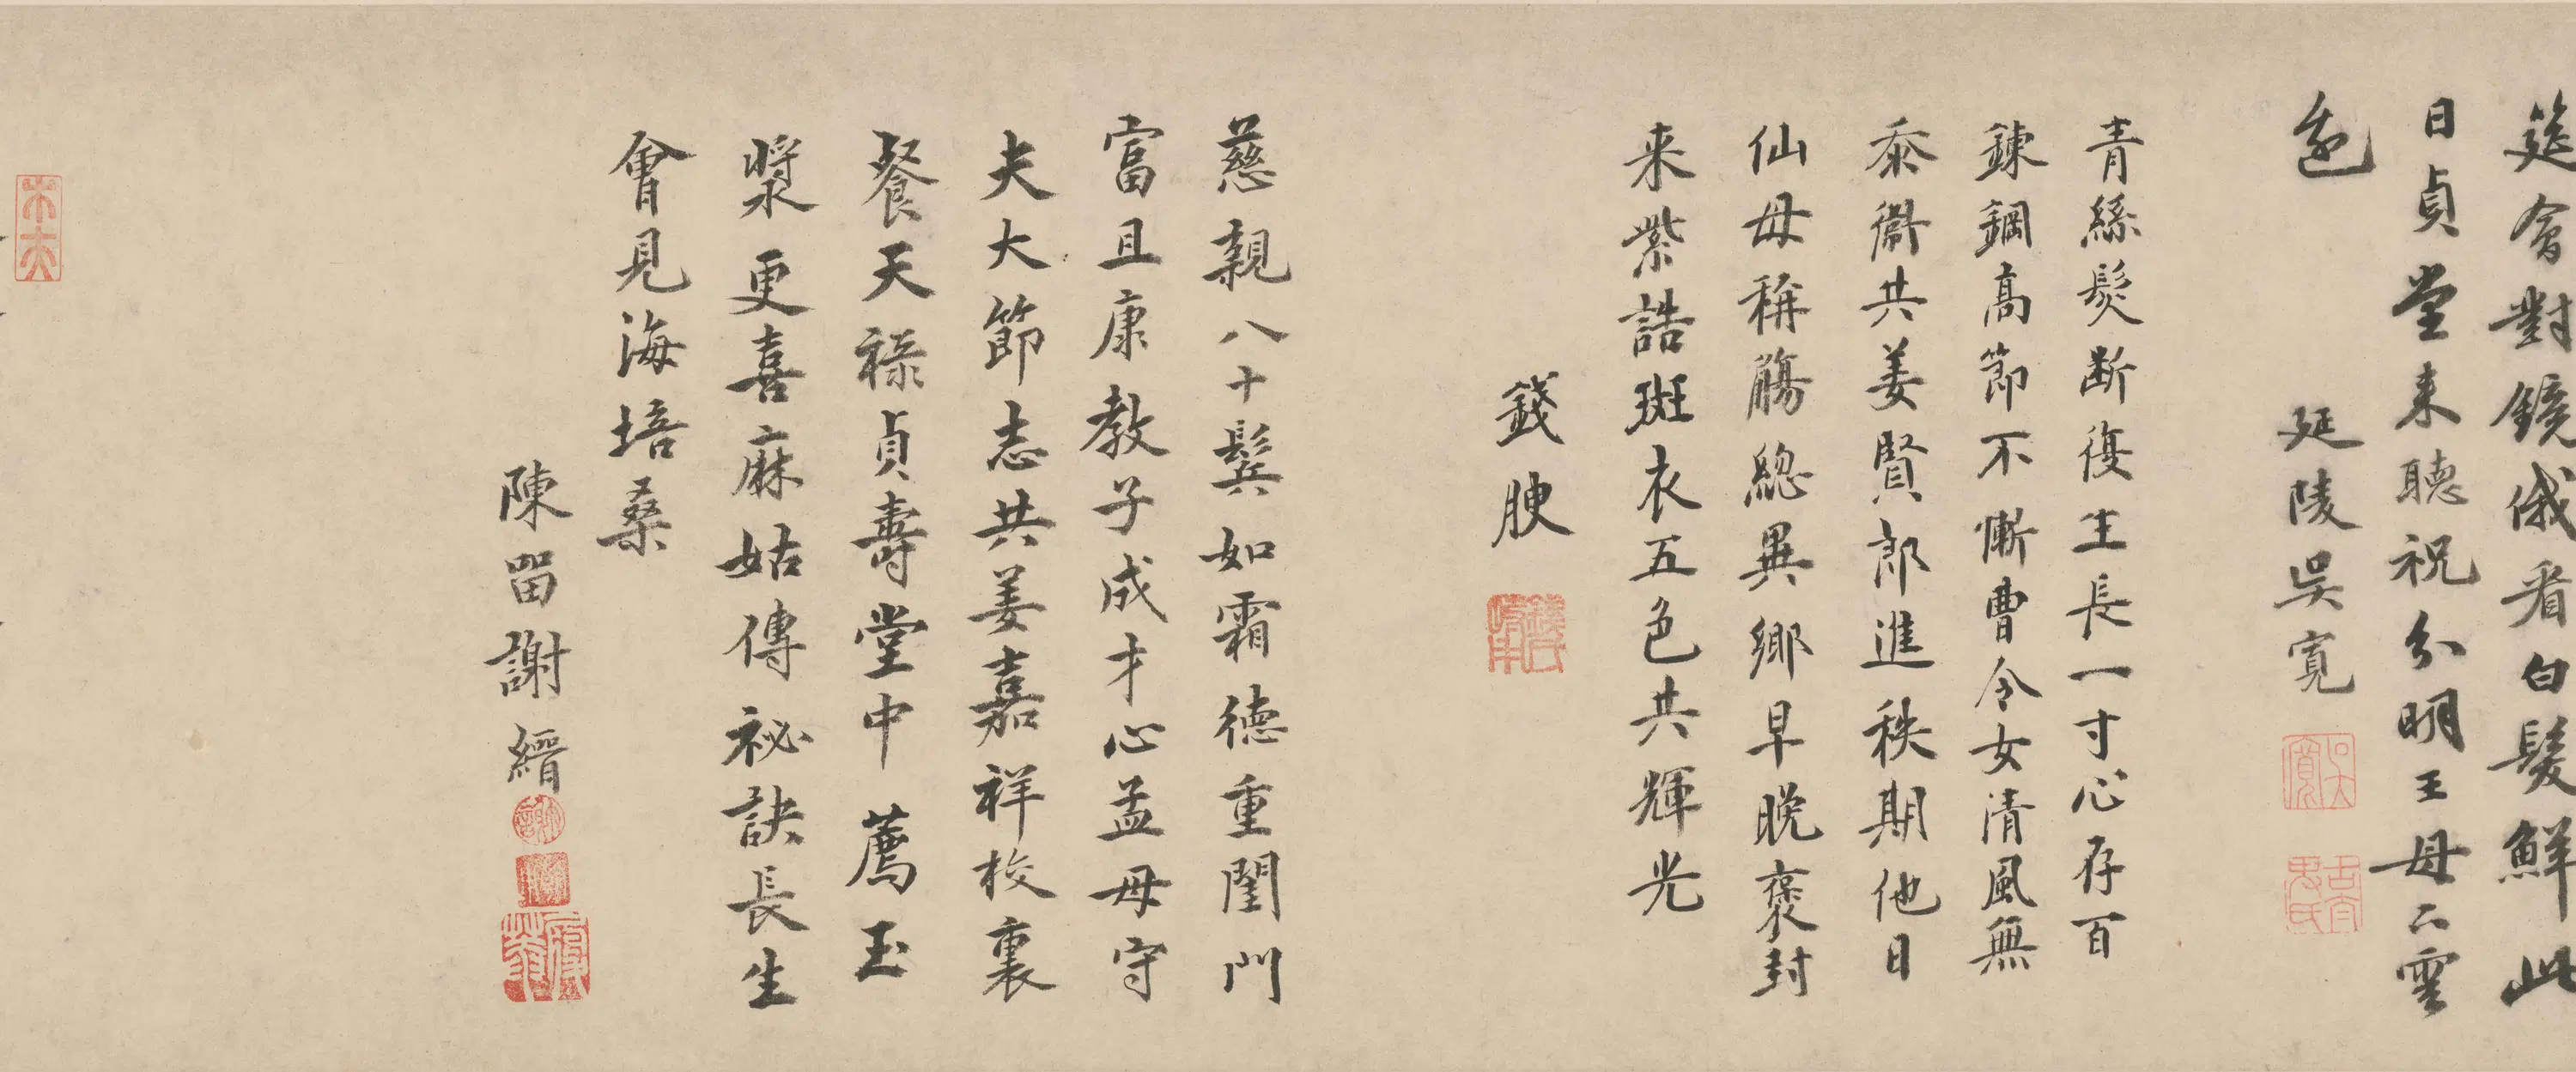 筵會對鏡俄看白髮鮮此
日貞堂来聽祝分明王母下雲
延陵吳寬
青絲髮断復生長一寸心存百
鍊鋼高節不慚曹令女清風無
忝衛共姜賢郎進秩期他日
仙母稱觴總異鄉早晚褒封
来紫誥斑衣五色共輝光
錢腴
慈親八十鬢如霜德重閨門
富且康教子成才心孟母守
夫大節志共姜嘉祥校裏
餐天祿貞壽堂中薦玉
漿更喜麻姑傳祕訣長生
會見海培桑
陳留謝縉